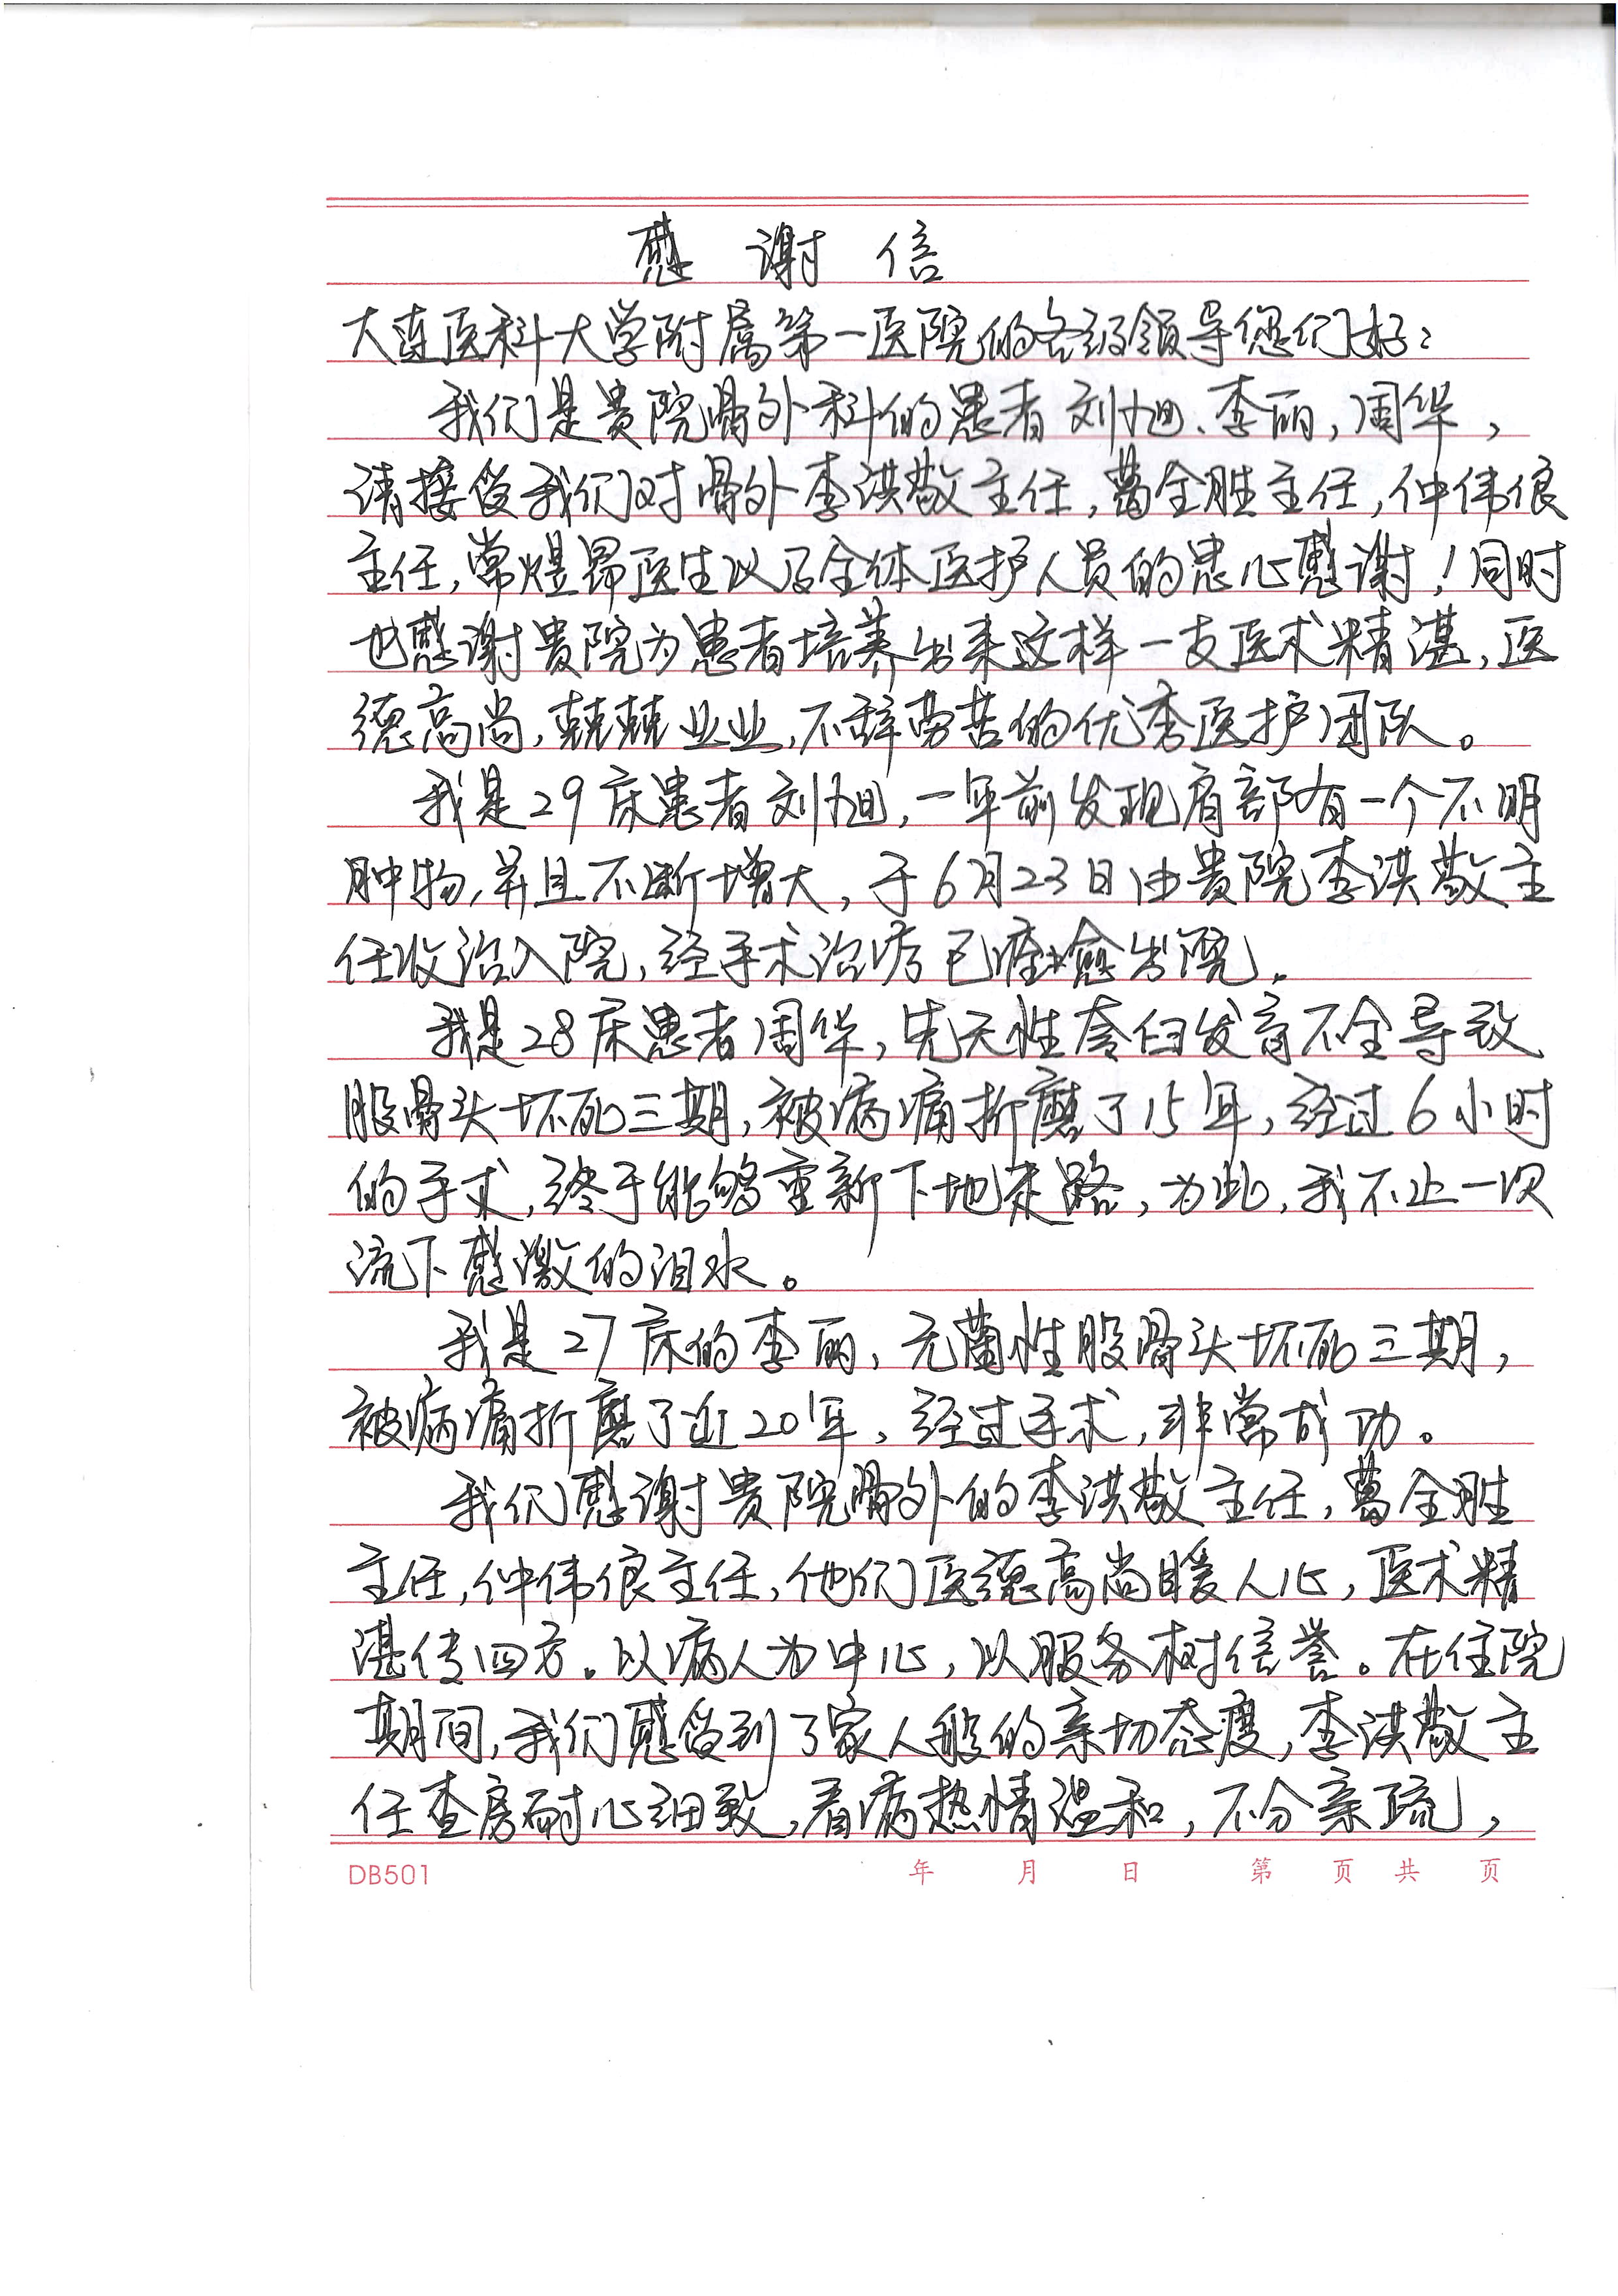 感谢信
大连医科大学附属第一医院的各级领导您们好：
我们是贵院骨外科的患者刘旭、李丽，周华，
请接受我们对骨外李洪敬主任，葛全胜主任，仲伟俍
主任，常煜昂医生以及全体医护人员的忠心感谢！同时
也感谢贵院为患者培养出来这样一支医术精湛，医
德高尚，兢兢业业，不辞劳苦的优秀医护团队。
我是29床患者刘旭，一年前发现肩部有一个不明
肿物，并且不断增大，于6月23日由贵院李洪敬主
任收治入院，经手术治疗已痊愈出院。
我是28床患者周华，先天性髋臼发育不全导致
股骨头坏死三期，被病痛折磨了15年，经过6小时
的手术，终于能够重新下地走路，为此，我不止一次
流下感激的泪水。
我是27床的李丽，无菌性股骨头坏死三期，
被病痛折磨了近20年，经过手术，非常成功。
我们感谢贵院骨外的李洪敬主任，葛全胜
主任，仲伟俍主任，他们医德高尚暖人心，医术精
湛传四方。以病人为中心，以服务树信誉。在住院
期间，我们感受到了家人般的亲切态度，李洪敬主
任查房耐心细致，看病热情温和，不分亲疏，
DB501 年 月 日 第 页 共 页